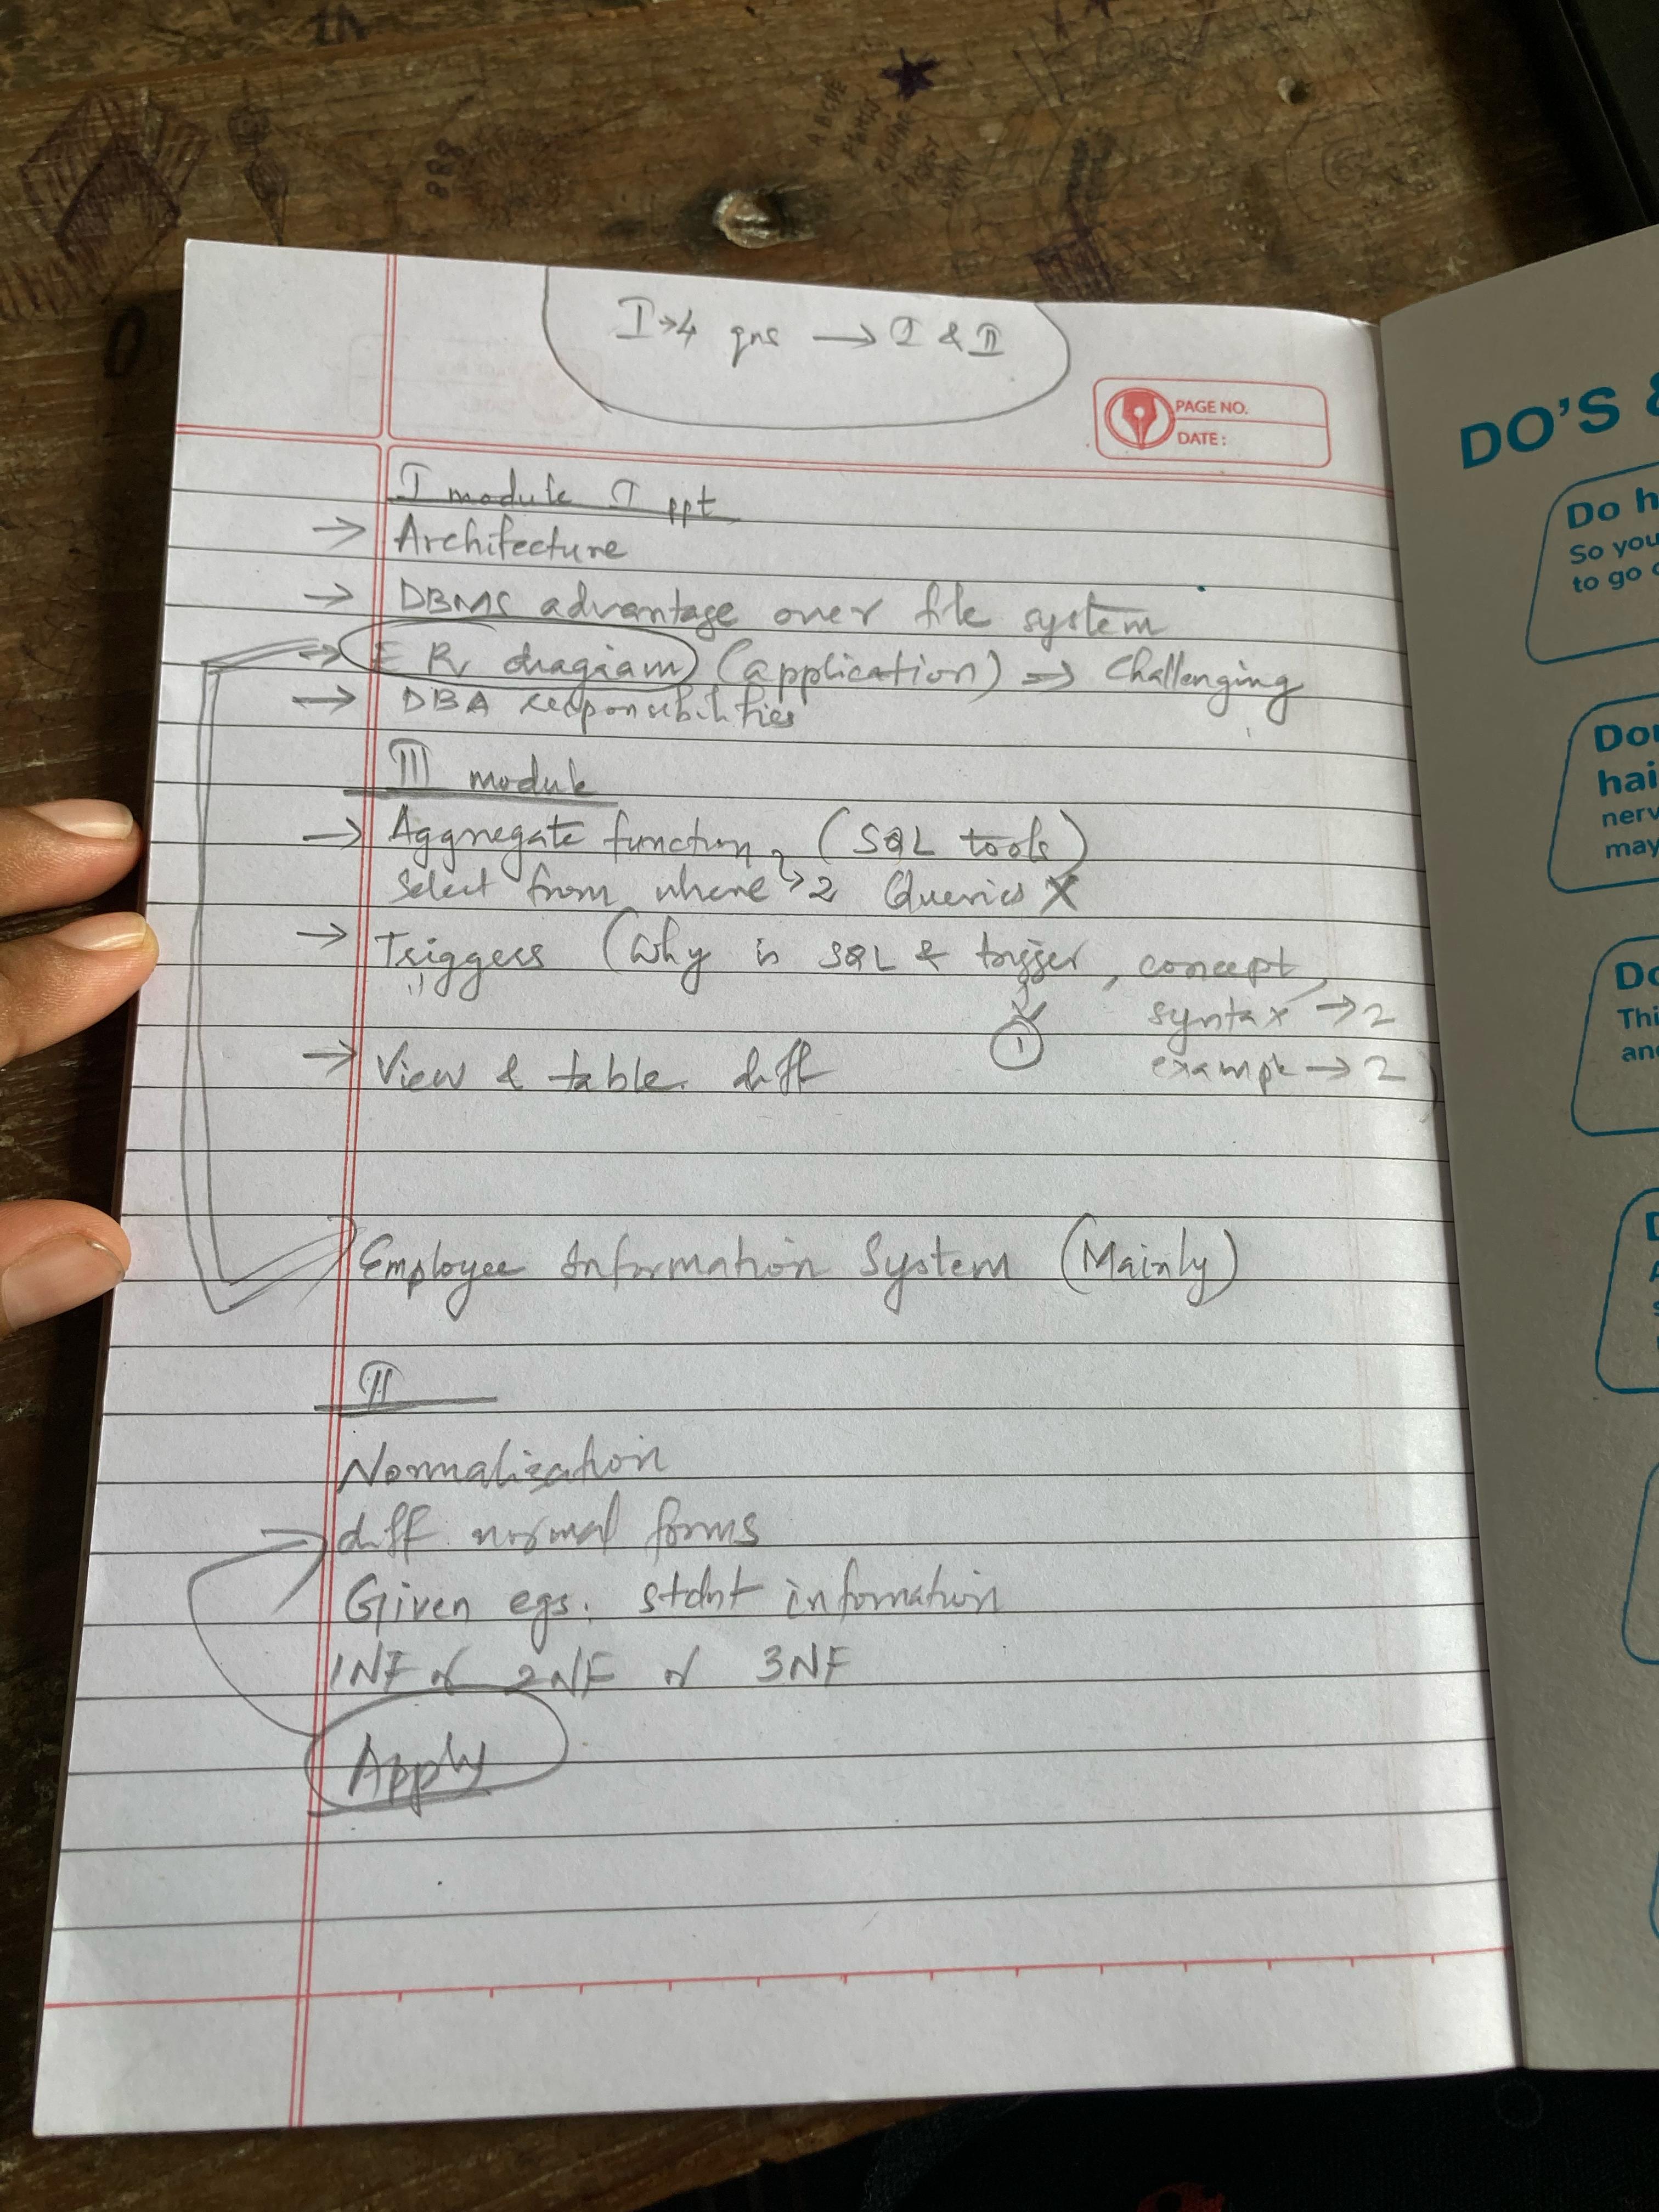 I → 4 qns → I & II
PAGE NO.
DATE:
I module I ppt
→ Architecture
→ DBMS advantage over file system
→ ER diagram (application) ⇒ Challenging
→ DBA responsibilities
III module
→ Aggregate function, (SQL tools)
Select from where → 2 Queries X
→ Triggers (Why is SQL & trigger, concept,
syntax → 2
1
example → 2)
→ View & table diff
Employee Information System (Mainly)
II
Normalization
diff normal forms
Given egs. stdnt information
1NF or 2NF or 3NF
Apply
DO'S &
Do h
So you
to go
Don
hai
nerv
may
Do
Thi
and